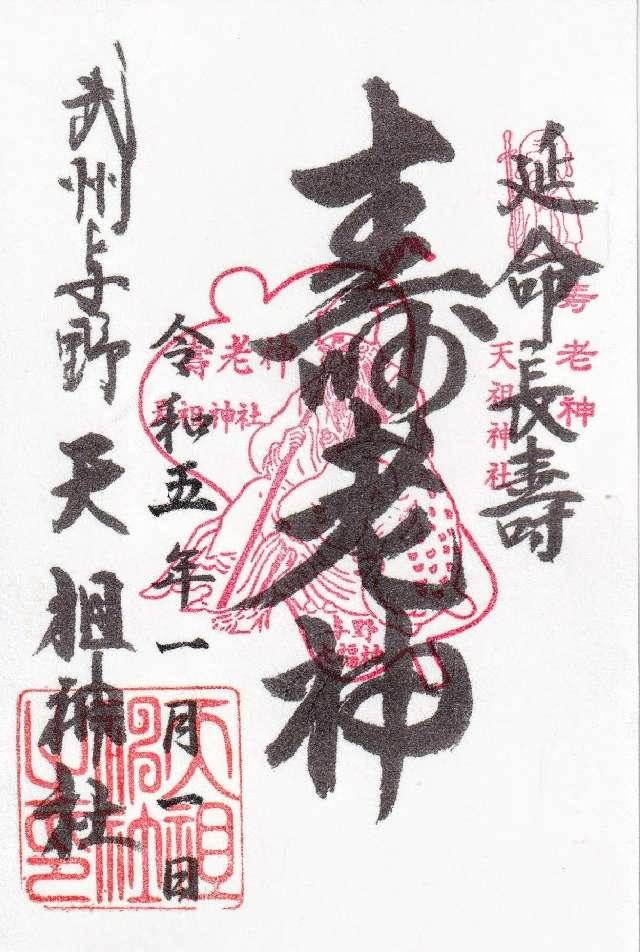 延命長壽
寿老神
天祖神社
壽老神
壽老神
天祖神社
与野
七福神
令和五年一月一日
武州与野天祖神社
天祖
神社
之印